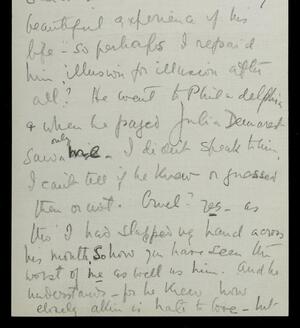 beautiful experience of his
life - so perhaps I repaid
him illusion for illusion after
all? He went to Philadelphia
& when he payed Julia Demarest
only
I saw him. I didn't speak to him
I can't tell if he knew or guessed
then or not. Cruel? yes - as
tho' I had slapped my hand across
his mouth. So now you have seen the
worst of me as well as him. And he
understands - for he knew how
closely allied is hate to love - but